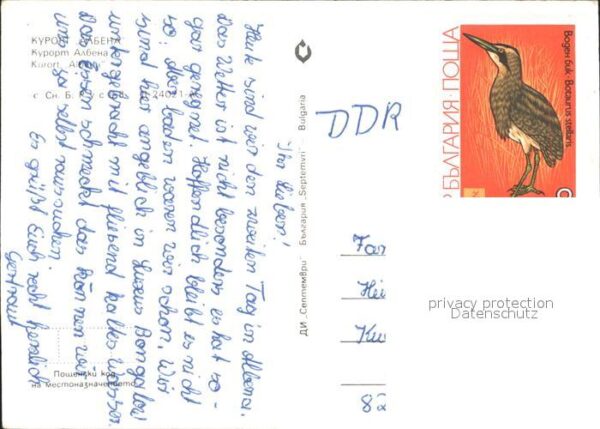 КУРОРТ АЛБЕНА
Курорт Албена
Kurort
с Сн. Б.
24021-А
Пощенски код
на местоназначението
ДИ „Септември" България „Septemvri" Bulgaria
Ihr Lieben!
Heute sind wir den zweiten Tag in Albena.
Das Wetter ist nicht besonders es hat so-
gar geregnet. Hoffendlich bleibt es nicht
so; aber baden waren wir schon. Wir
sind hier angeblich in Luxus Bongalow
untergebracht mit fliesend kaltes Wasser.
Das Essen schmeckt das können wir
uns so selbst aussuchen.
Es grüßt Euch recht herzlich
Gertraud
DDR
Воден бик · Botaurus stellaris
БЪЛГАРИЯ · ПОЩА
Fam
Hei
82
privacy protection
Datenschutz